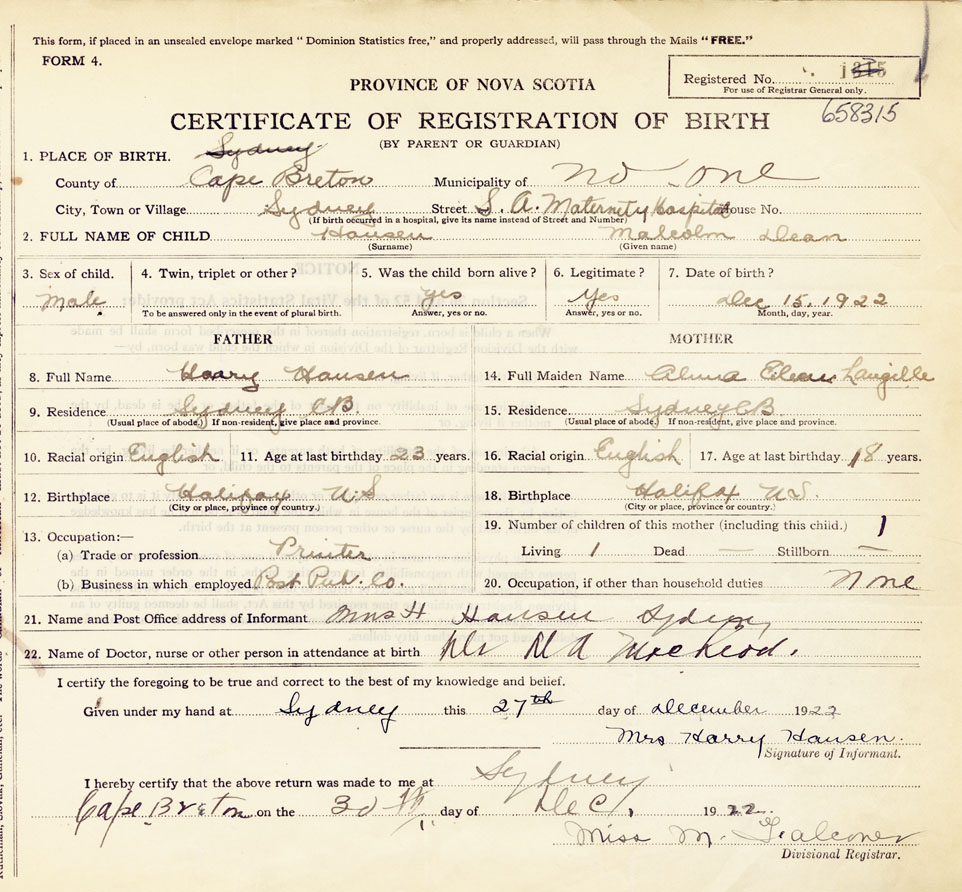 This form, if placed in an unsealed envelope marked “Dominion Statistics free,” and properly addressed, will pass through the Mails “FREE.”
FORM 4.
Registered No. 1315
For use of Registrar General only.
658315
PROVINCE OF NOVA SCOTIA
CERTIFICATE OF REGISTRATION OF BIRTH
(BY PARENT OR GUARDIAN)
1. PLACE OF BIRTH. Sydney
County of Cape Breton Municipality of no one
City, Town or Village Sydney Street S. A. Maternity Hospital House No.
(If birth occurred in a hospital, give its name instead of Street and Number)
2. FULL NAME OF CHILD Hansen Malcolm Dean
(Surname) (Given name)
3. Sex of child. 4. Twin, triplet or other? 5. Was the child born alive? 6. Legitimate? 7. Date of birth?
Male yes Yes Dec 15, 1922
To be answered only in the event of plural birth. Answer, yes or no. Answer, yes or no. Month, day, year.
FATHER MOTHER
8. Full Name Harry Hansen 14. Full Maiden Name Langille
9. Residence Sydney CB 15. Residence. Sydney CB
(Usual place of abode.) If non-resident, give place and province. (Usual place of abode.) If non-resident, give place and province.
10. Racial origin English 11. Age at last birthday 23 years. 16. Racial origin English 17. Age at last birthday 18 years.
12. Birthplace Halifax N.S 18. Birthplace Halifax N.S.
(City or place, province or country.) (City or place, province or country.)
13. Occupation:— 19. Number of children of this mother (including this child.) 1
(a) Trade or profession Printer Living 1 Dead — Stillborn —
(b) Business in which employed Post Pub. Co. 20. Occupation, if other than household duties None
21. Name and Post Office address of Informant Mrs H Hansen Sydney
22. Name of Doctor, nurse or other person in attendance at birth MacLeod.
I certify the foregoing to be true and correct to the best of my knowledge and belief.
Given under my hand at Sydney this 27th day of December 1922
Mrs Harry Hansen.
Signature of Informant.
I hereby certify that the above return was made to me at Sydney
Cape Breton on the 30th day of Dec, 1922
Miss M. Falconer
Divisional Registrar.